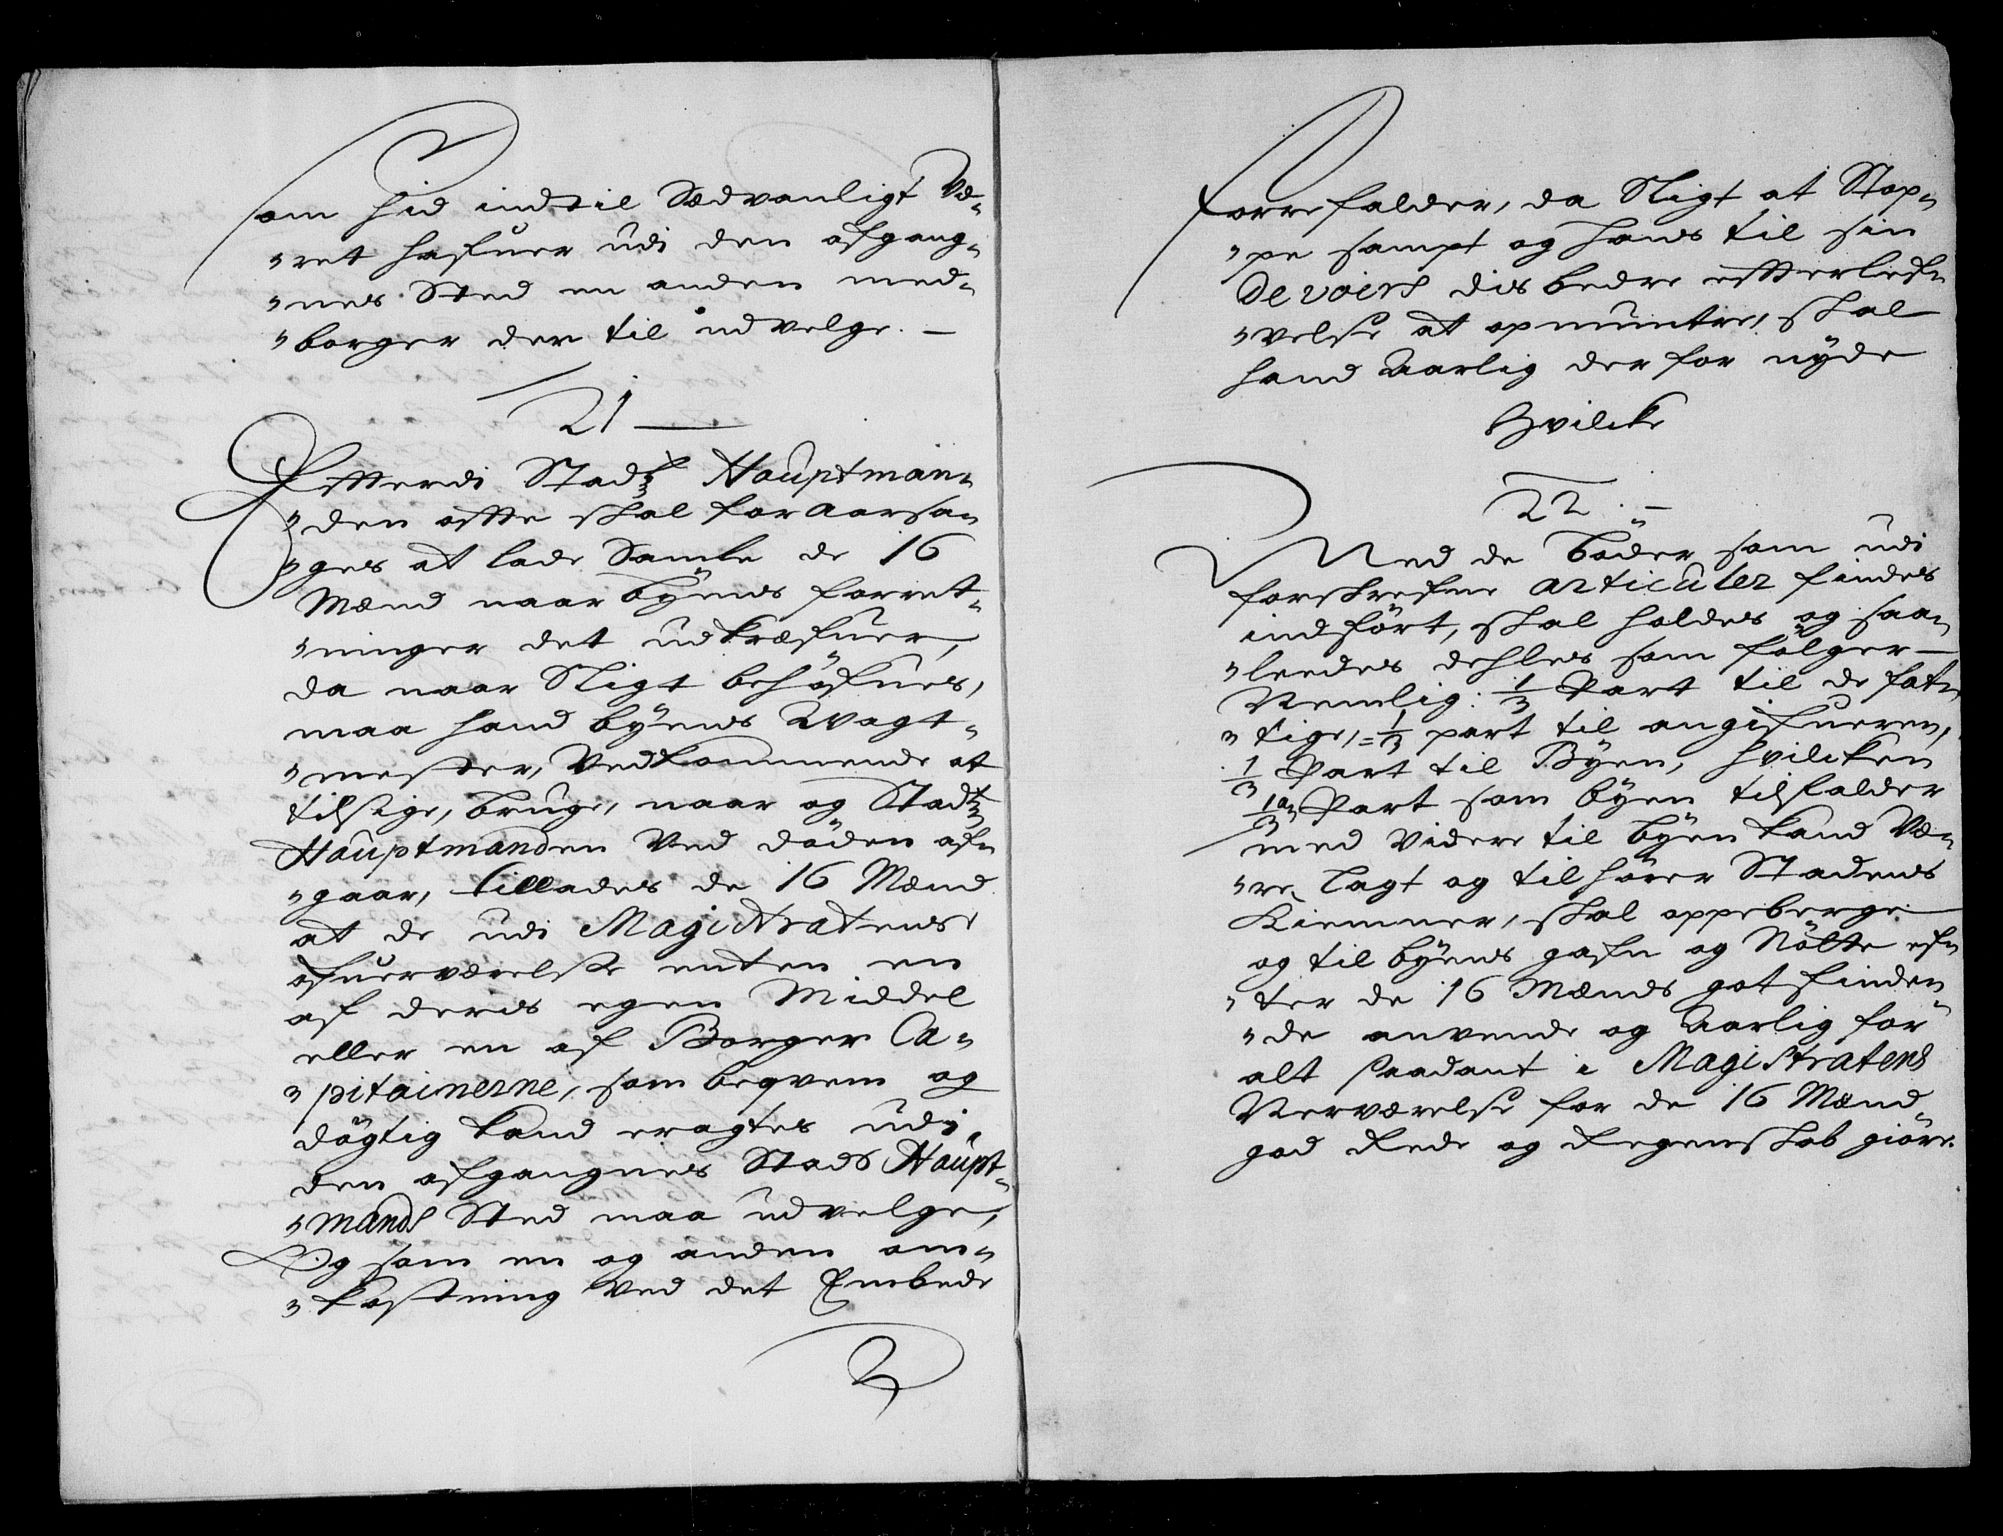 som hid indtil Sædvanligt Væ-
-ret hafuer udi den afgang-
-nes Sted en anden med-
-borger der til udvelge. —
21 —
Efftterdi Stadtz Hauptman-
-den offte skal foraarsa-
-ges at lade Samle de 16
Mænd naar byens forret-
-ninger det udkræfuer,
da naar Sligt behøfues,
maa hand byens Wagt-
-mester, Vedkommende at
tilsige, bruge, naar og Stadtz
Hauptmanden Ved døden af-
-gaar, tillades de 16 Mænd
at de udi Magistratens
ofuerværelsse enten en
af deris egen Middel
eller en af Borger Ca-
-pitainerne, som beqvem og
døgtig kand eragtes udi
den afgangnes Stads Haupt-
-mands Sted maa udvelge,
Og som en og anden om-
-kostning Ved det Embede
forrefalder, da Sligt at Stop-
-pe sampt og hans til sin
devoirs dis bedre effterlef-
-velse at opmuntre, skal
hand Aarlig der for nyde
hvilcke
22. —
Med de bøder som udi
forskrefne articuler findes
indført, skal holdes og saa-
-leedes dehles som følger —
Nemlig: 1/3 Part til de fat-
-tige, = 1/3 part til angifueren,
1/3 Part til Byen, hvilcken
1/3 Part som byen tilfalder
med videre til byen kand Væ-
-re lagt og tilhører Stadens
Kiemner, skal oppeberge
og til byens gafn og Nøtte ef-
-ter de 16 Mænds gotfinden-
-de anvende og Aarlig for
alt saadant i Magistratens
Nerværelse for de 16 Mænd
god Rede og Regenskab giøre.